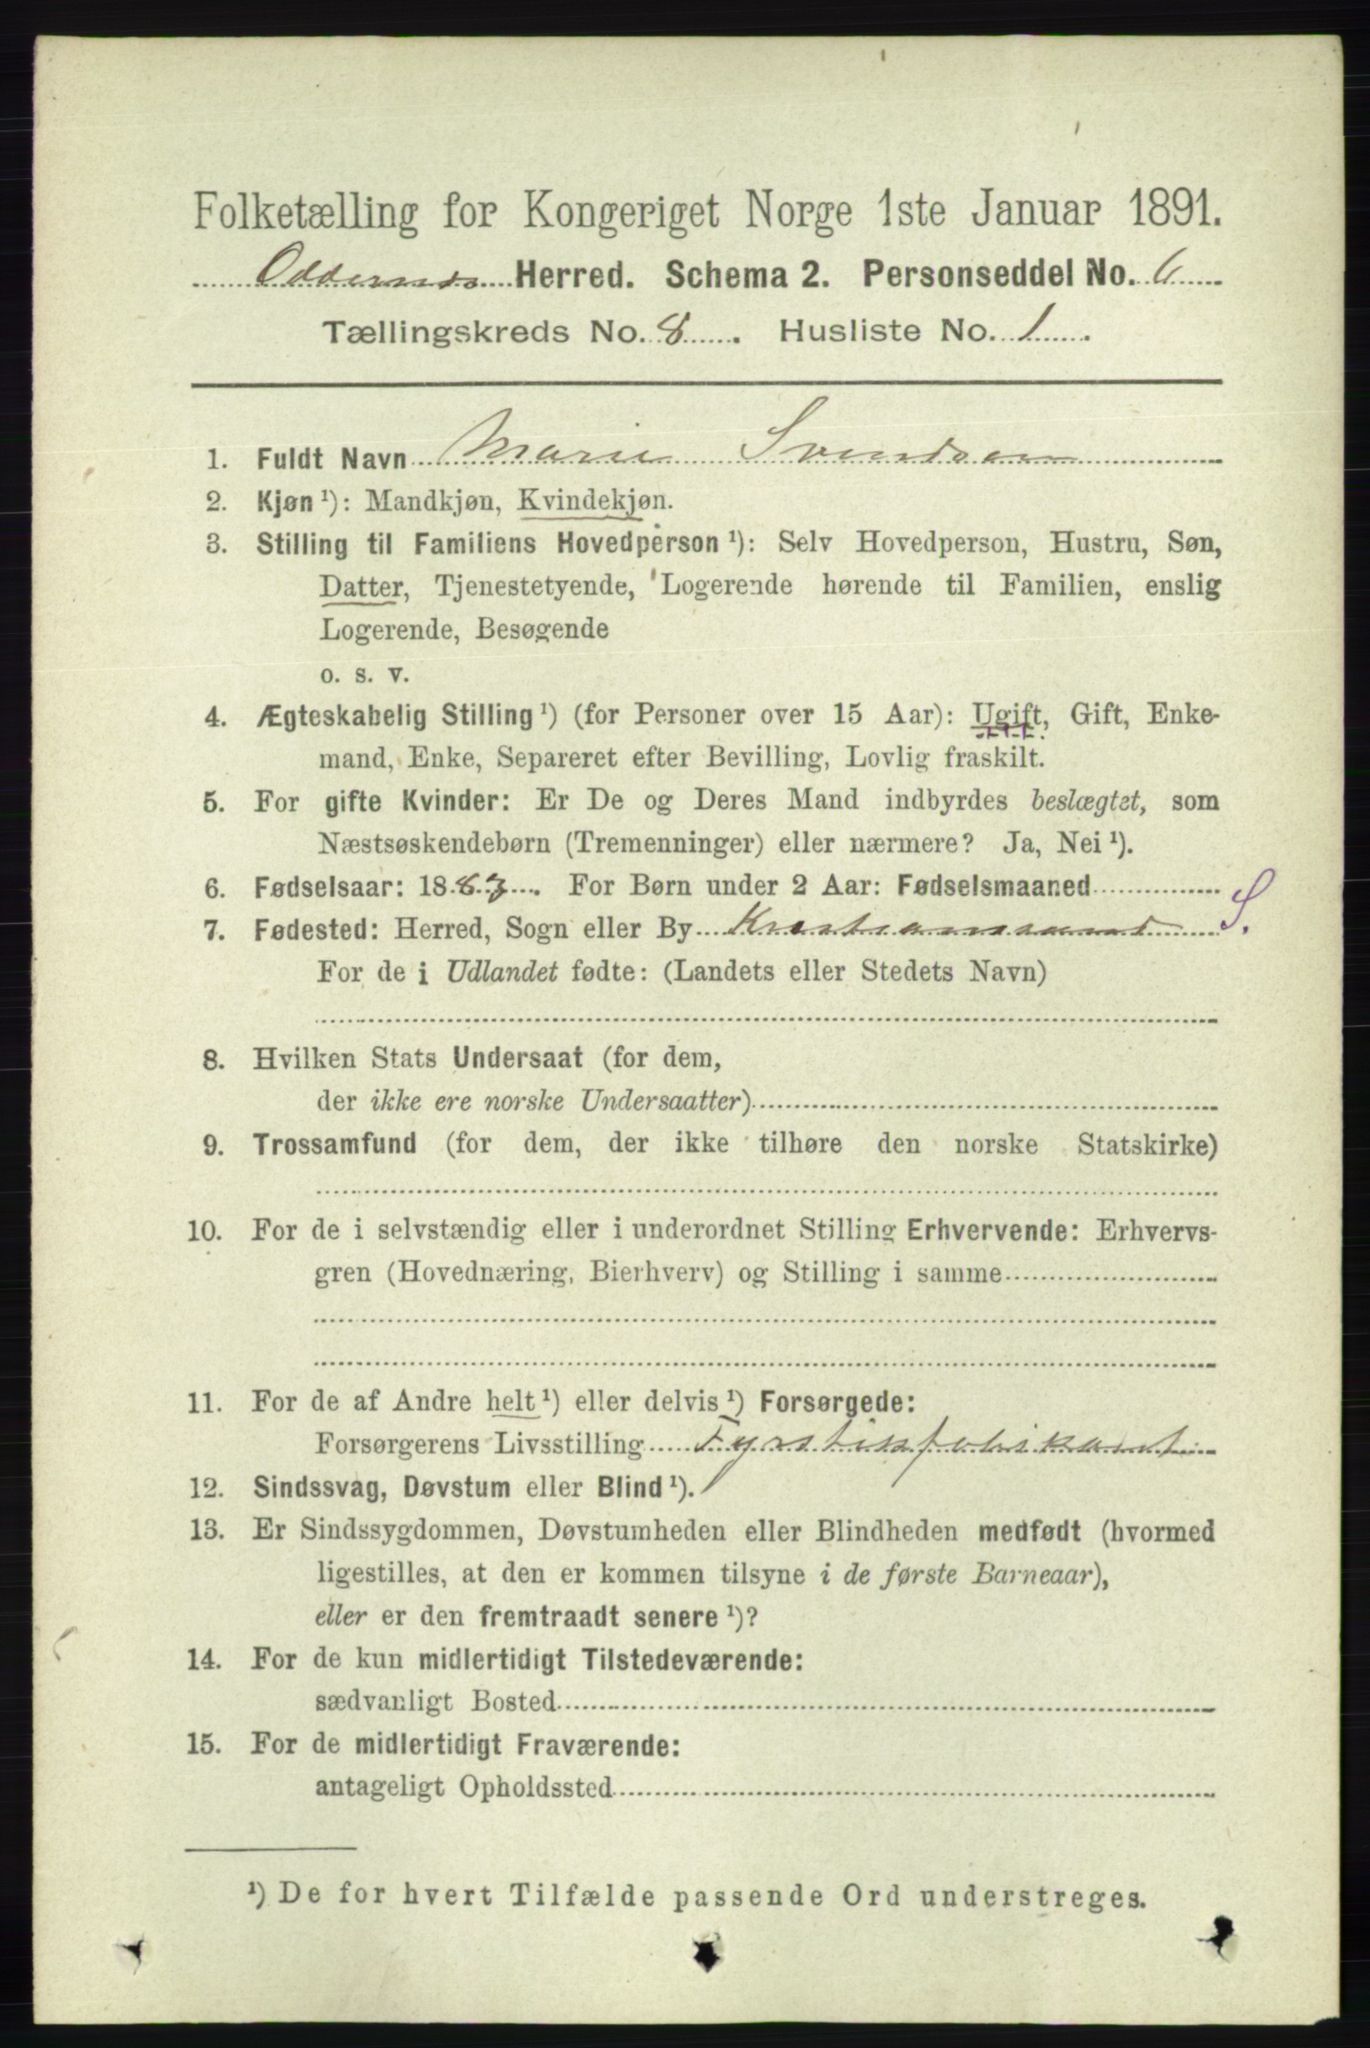 Folketælling for Kongeriget Norge 1ste Januar 1891.
Oddernes Herred. Schema 2. Personseddel No. 6
Tællingskreds No. 8. Husliste No. 1.
1. Fuldt Navn Marie Svendsen
2. Kjøn ¹): Mandkjøn, Kvindekjøn.
3. Stilling til Familiens Hovedperson ¹): Selv Hovedperson, Hustru, Søn,
Datter, Tjenestetyende, Logerende hørende til Familien, enslig
Logerende, Besøgende
o. s. v.
4. Ægteskabelig Stilling ¹) (for Personer over 15 Aar): Ugift, Gift, Enke-
mand, Enke, Separeret efter Bevilling, Lovlig fraskilt.
5. For gifte Kvinder: Er De og Deres Mand indbyrdes beslægtet, som
Næstsøskendebørn (Tremenninger) eller nærmere? Ja, Nei ¹).
6. Fødselsaar: 1883. For Børn under 2 Aar: Fødselsmaaned
7. Fødested: Herred, Sogn eller By Kristianssand S.
For de i Udlandet fødte: (Landets eller Stedets Navn)
8. Hvilken Stats Undersaat (for dem,
der ikke ere norske Undersaatter)
9. Trossamfund (for dem, der ikke tilhøre den norske Statskirke)
10. For de i selvstændig eller i underordnet Stilling Erhvervende: Erhvervs-
gren (Hovednæring, Bierhverv) og Stilling i samme
11. For de af Andre helt ¹) eller delvis ¹) Forsørgede:
Forsørgerens Livsstilling Fyrstikfabrikant
12. Sindssvag, Døvstum eller Blind ¹).
13. Er Sindssygdommen, Døvstumheden eller Blindheden medfødt (hvormed
ligestilles, at den er kommen tilsyne i de første Barneaar),
eller er den fremtraadt senere ¹)?
14. For de kun midlertidigt Tilstedeværende:
sædvanligt Bosted
15. For de midlertidigt Fraværende:
antageligt Opholdssted
¹) De for hvert Tilfælde passende Ord understreges.